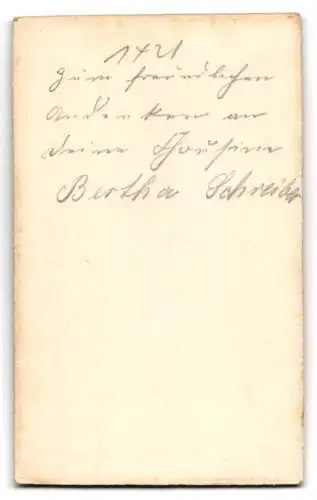 1421
Zum freundlichen
Andenken an
deine Cousine
Bertha Schreiber